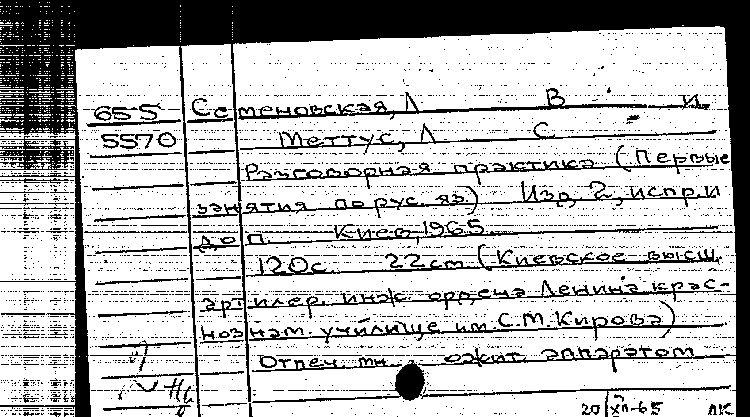 65-5 Семеновская, Л В и
5570 Меттус, Л С
Разговорная практика (Первые
занятия по рус. яз.) Изд. 2, испр. и
доп. Киев, 1965
120с. 22см. (Киевское высш.
артилер. инж. ордена Ленина крас-
нознам. училище им. С.М. Кирова)
Отпеч. мн. аппаратом
20/XII-65 ЛК